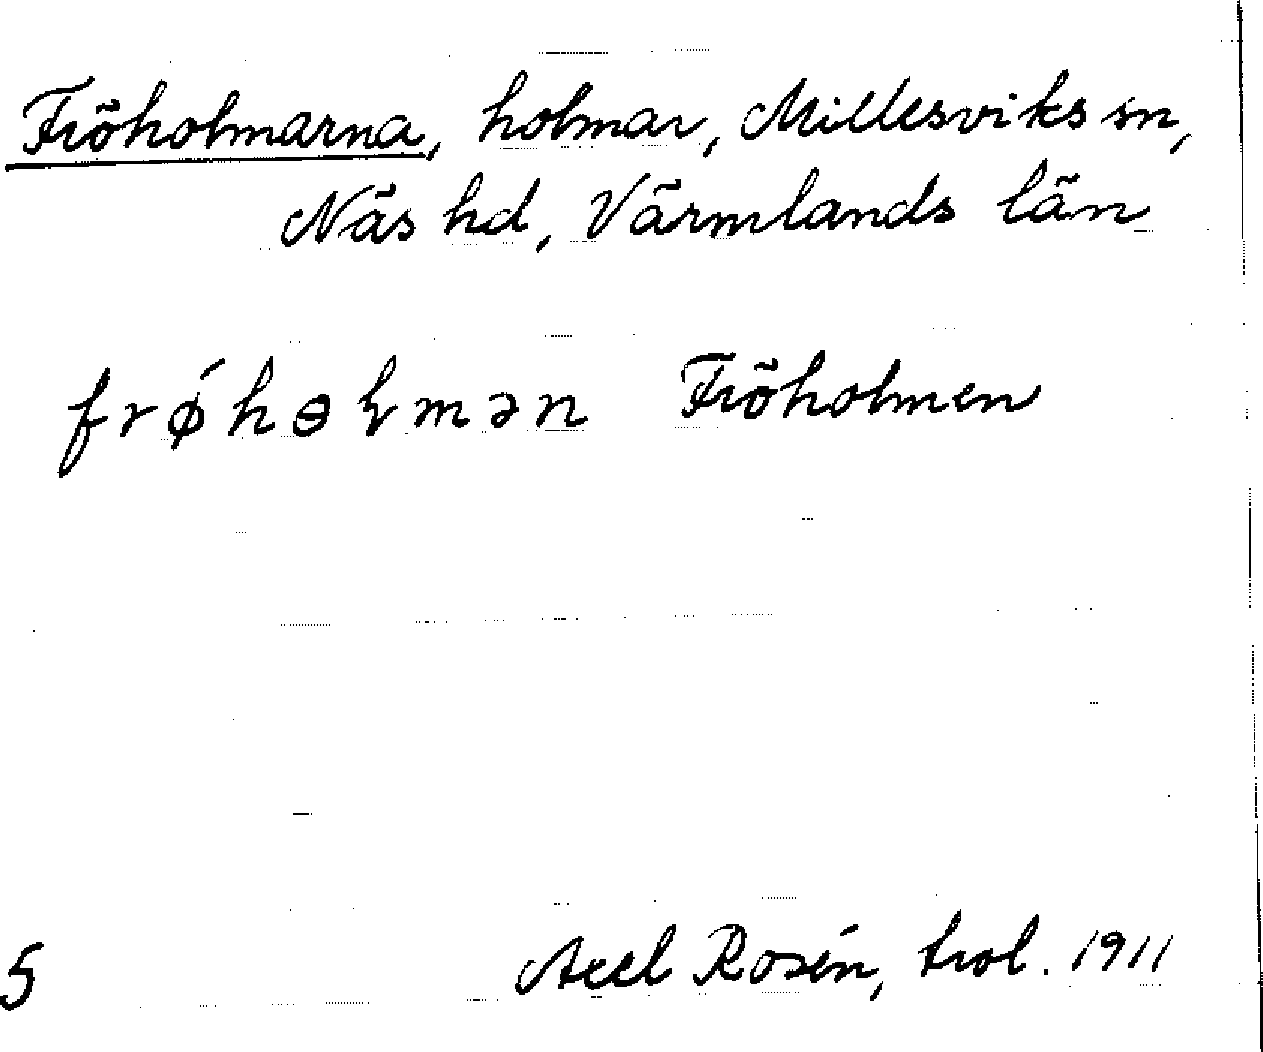 Fröholmarna, holmar, Millesviks sn,
Näs hd, Värmlands län
frǿhɵɽmən Fröholmen
5 Axel Rosén, trol. 1911